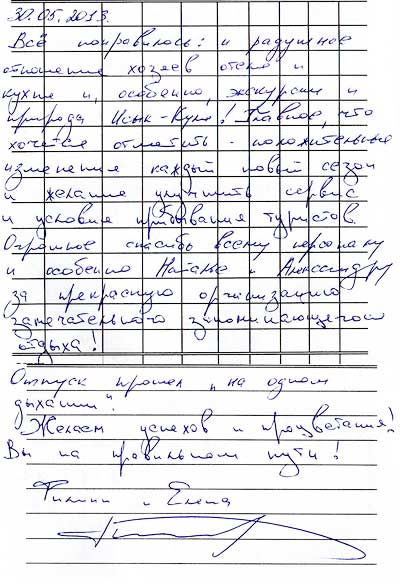 30.05.2013.
Всё понравилось: и радушное
отношение хозяев отеля и
кухня и, особенно, экскурсии и
природа Иссык-Куля! Главное, что
хочется отметить - положительные
изменения каждый новый сезон
и желание улучшить сервис
и условия пребывания туристов
Огромное спасибо всему персоналу
и особенно Наталье и Александру
за прекрасную организацию
замечательного запоминающегося
отдыха!
Отпуск прошел "на одном
дыхании".
Желаем успехов и процветания!
Вы на правильном пути!
и Елена